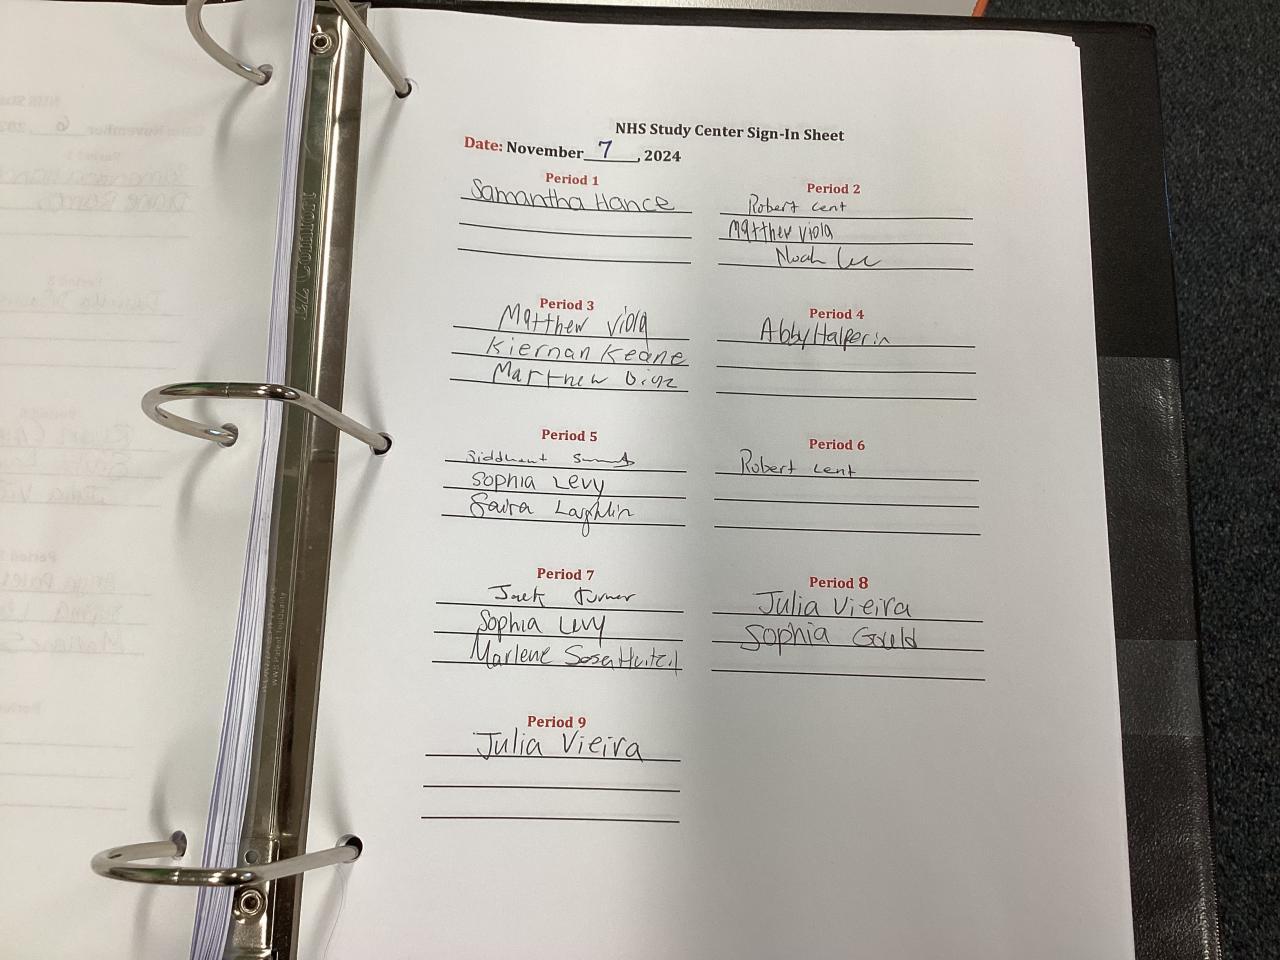 NHS Study Center Sign-In Sheet
Date: November 7, 2024
Period 1
Samantha Hance
Period 2
Robert Cent
Matthew Viola
Noah
Period 3
Matthew Viola
Kiernan Keane
Matthew
Period 4
Abby Halperin
Period 5
Siddhant
Sophia Levy
Laughlin
Period 6
Robert Cent
Period 7
Jack Turner
Sophia Levy
Marlene Sosa
Period 8
Julia Vieira
Sophia Gould
Period 9
Julia Vieira